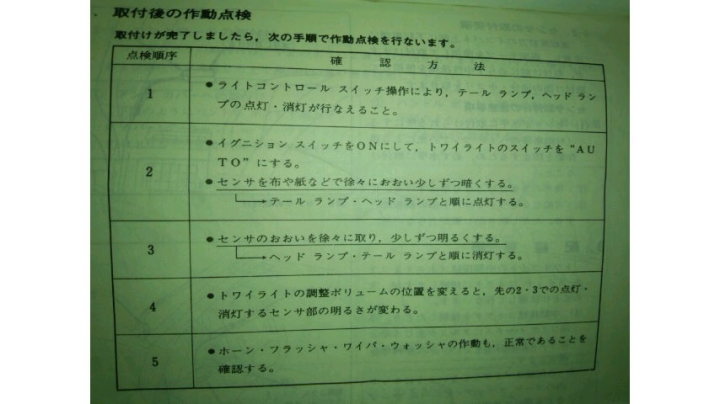 取付後の作動点検
取付けが完了しましたら，次の手順で作動点検を行ないます。
点検順序
確認方法
1
●ライトコントロール スイッチ操作により，テール ランプ，ヘッド ラン
プの点灯・消灯が行なえること。
2
●イグニション スイッチをONにして，トワイライトのスイッチを“AU
TO”にする。
●センサを布や紙などで徐々におおい少しずつ暗くする。
→テール ランプ・ヘッド ランプと順に点灯する。
3
●センサのおおいを徐々に取り，少しずつ明るくする。
→ヘッド ランプ・テール ランプと順に消灯する。
4
●トワイライトの調整ボリュームの位置を変えると，先の2・3での点灯・
消灯するセンサ部の明るさが変わる。
5
●ホーン・フラッシャ・ワイパ・ウォッシャの作動も，正常であることを
確認する。